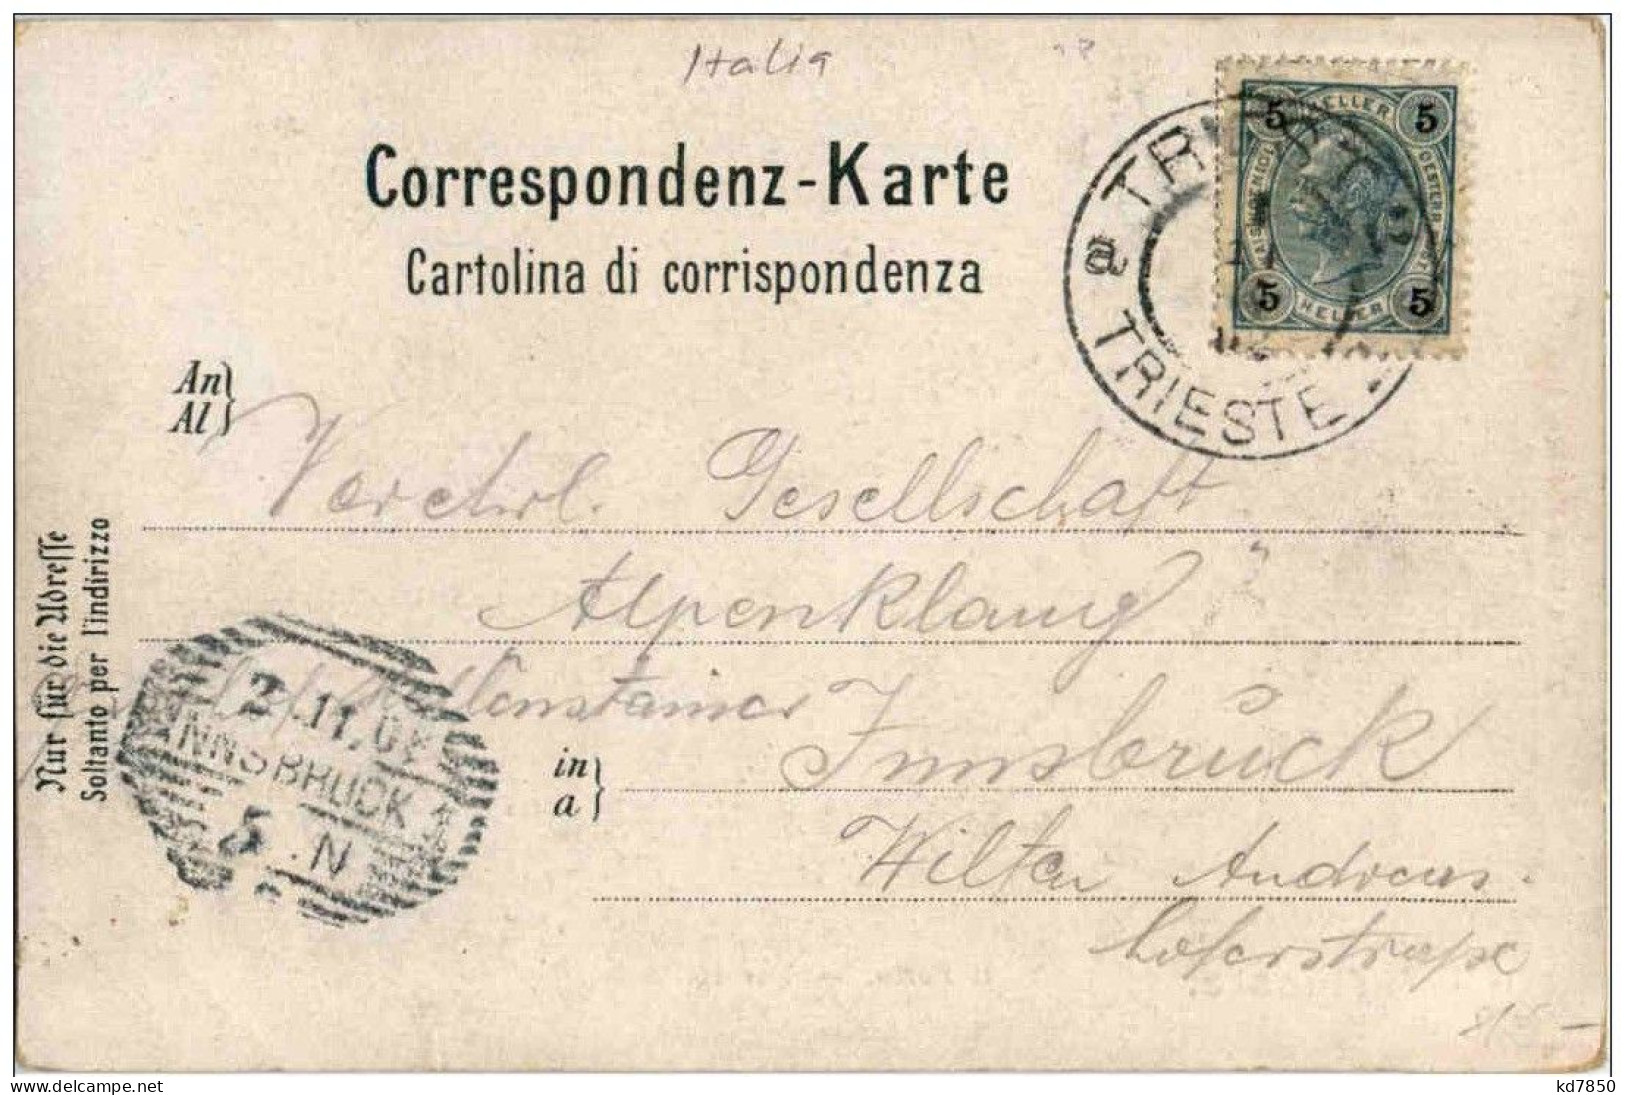 Italia
Correspondenz-Karte
Cartolina di corrispondenza
5 HELLER 5
5 HELLER 5
a TRIEST
TRIESTE
An
Al
Verehrl. Gesellschaft
Alpenklang
Innsbruck
in
a
Wilten Andreas-
hoferstraße
Nur für die Adresse
Soltanto per l'indirizzo
2.11.0
INNSBRUCK 1
5. N
kd7850